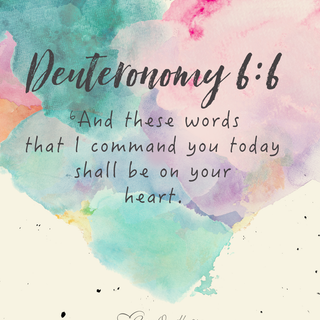 Deuteronomy 6:6
⁶And these words
that I command you today
shall be on your
heart.